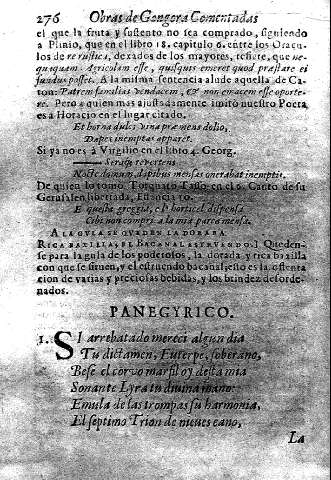 276 Obras de Gongora Comentadas
el que la fruta y sustento no sea comprado, siguiendo
a Plinio, que en el libro 18. capitulo 6. entre los Oracu-
los de re rustica, dexados de los mayores, refiere, que ne-
quaquam Agricolam esse, quisquis emeret quod præstare ei
fundus posset. A la misma sentencia alude aquella de Ca-
ton: Patrem familias vendacem, & non emacem esse oporte-
re. Pero a quien mas ajustadamente imitò nuestro Poeta
es a Horacio en el lugar citado.
Et horna dulci vina promens dolio,
Dapes inemptas apparet.
Si ya no es à Virgilio en el libro 4. Georg.
Seraque revertens
Nocte domum, dapibus mensas onerabat inemptis.
De quien lo tomò Torquato Tasso en el Canto de su
Gerusalen libertada, Estancia 10.
E questa greggia, e l'horticel dispensa
Cibi non compri a la mia parca mensa.
A LA GULA SE QUEDEN LA DORADA
RICA BAXILLA, EL BACANAL ESTRUENDO.] Queden-
se para la gula de los poderosos, la dorada y rica baxilla
con que se sirven, y el estruendo bacanal, esto es la ostenta
cion de varias y preciosas bebidas, y los brindez desorde-
nados.
PANEGYRICO.
1. SI arrebatado mereci algun dia
Tu dictamen, Euterpe, soberano,
Bese el corvo marfil oy desta mia
Sonante Lyra tu divina mano:
Emula de las trompas su harmonia,
El septimo Trion de nieves cano,
La